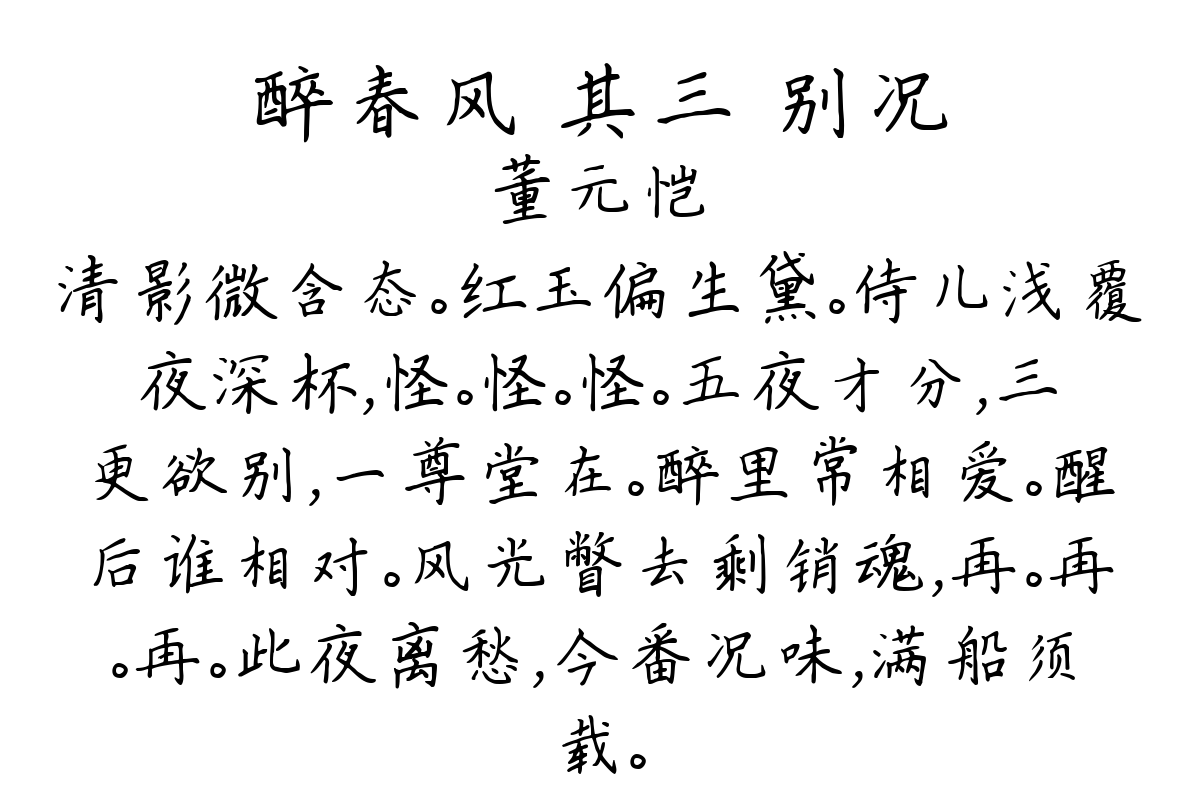 醉春风 其三 别况
董元恺
清影微含态。红玉偏生黛。侍儿浅覆
夜深杯,怪。怪。怪。五夜才分,三
更欲别,一尊堂在。醉里常相爱。醒
后谁相对。风光瞥去剩销魂,再。再
。再。此夜离愁,今番况味,满船须
载。